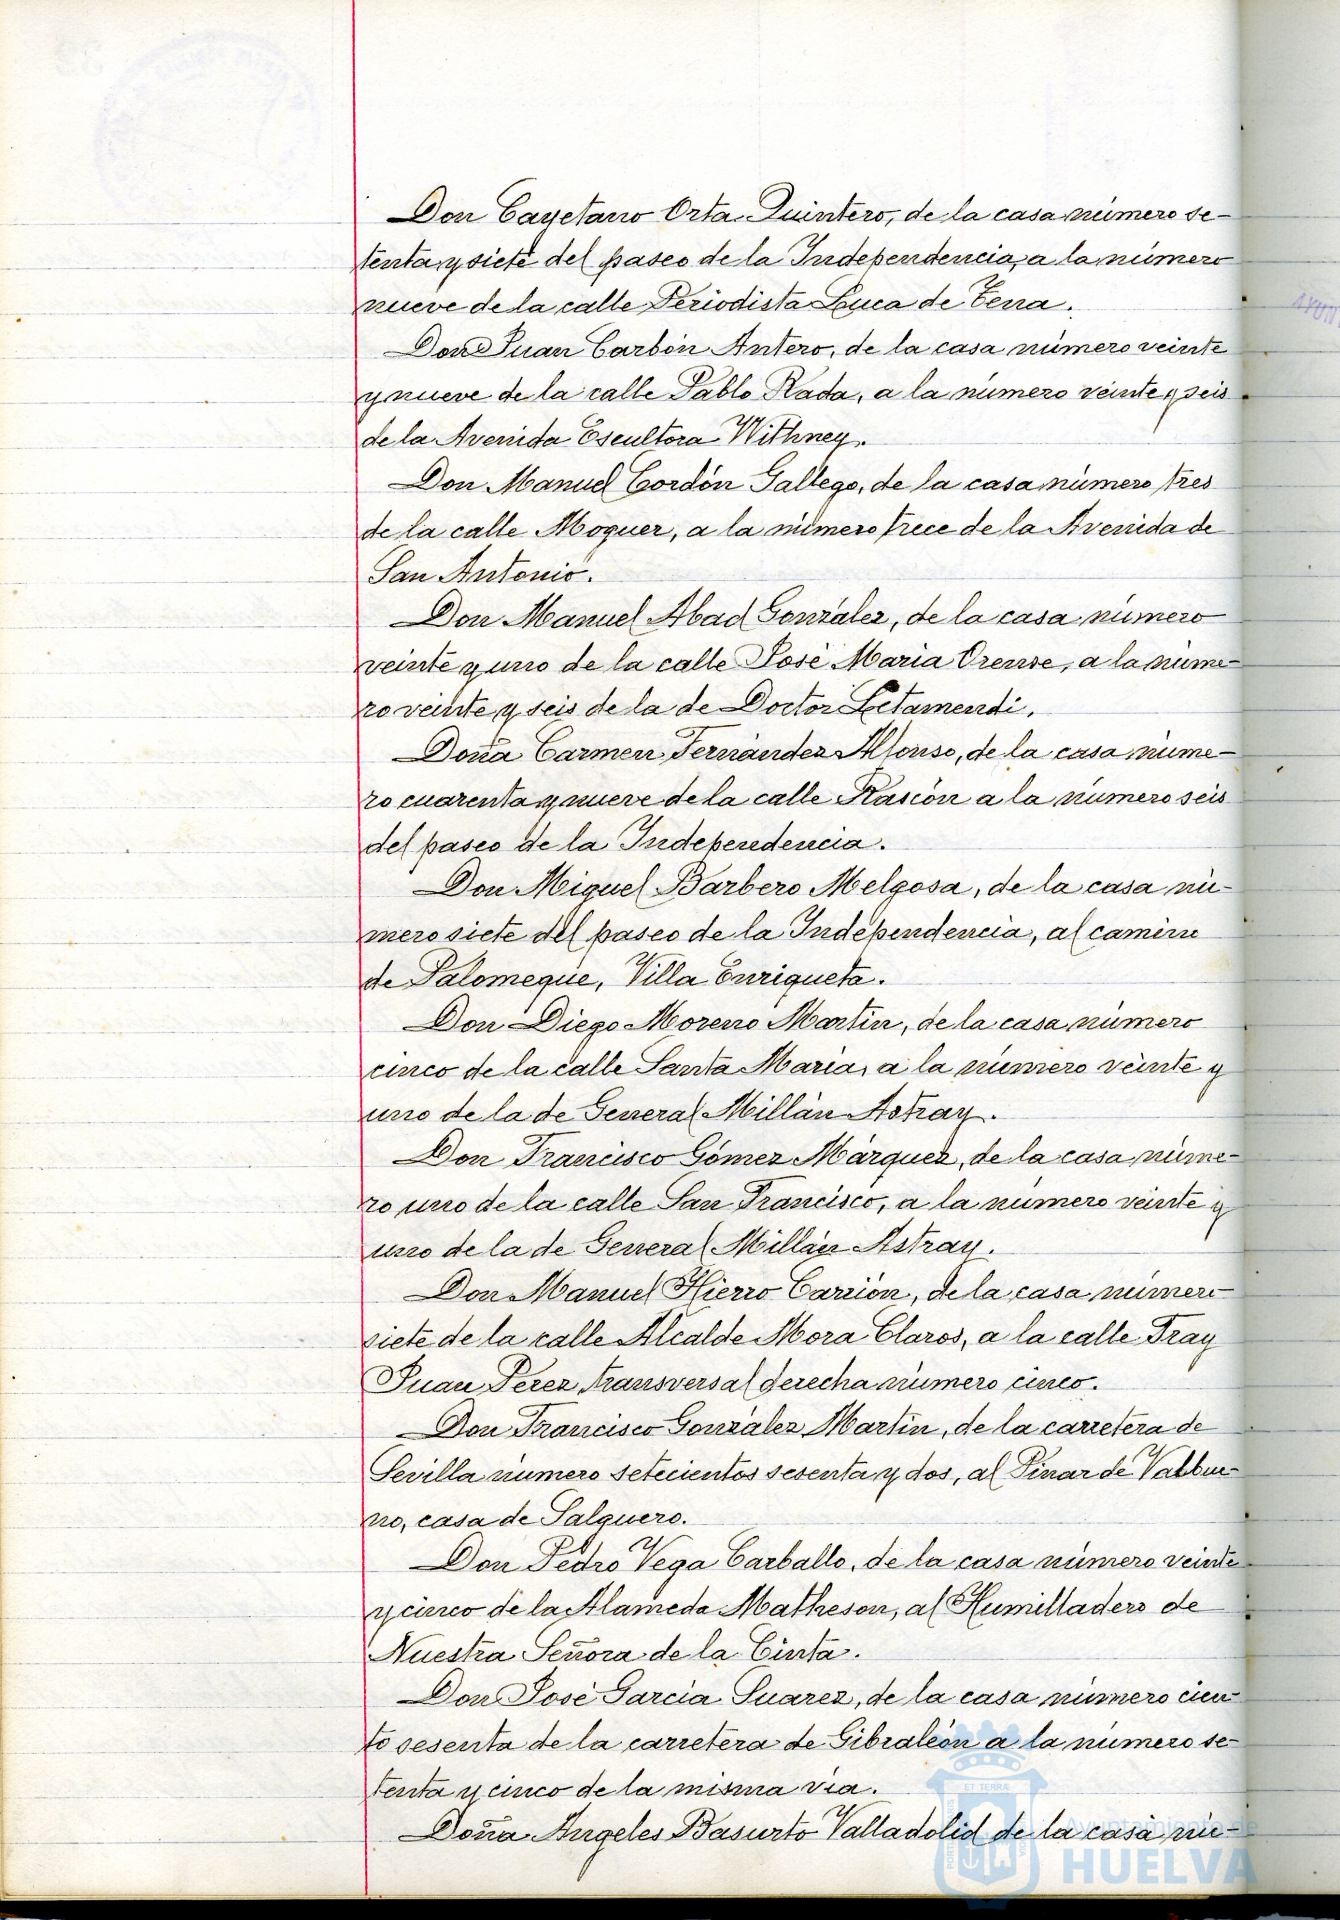 Don Cayetano Orta Quintero, de la casa número se-
tenta y siete del paseo de la Independencia, a la número
nueve de la calle Periodista Luca de Tena.
Don Juan Carbón Antero, de la casa número veinte
y nueve de la calle Pablo Rada, a la número veinte y seis
de la Avenida Escultora Withney.
Don Manuel Cordón Gallego, de la casa número tres
de la calle Moguer, a la número trece de la Avenida de
San Antonio.
Don Manuel Abad González, de la casa número
veinte y uno de la calle José Maria Orense, a la núme-
ro veinte y seis de la de Doctor Letamendi.
Doña Carmen Fernández Alfonso, de la casa núme-
ro cuarenta y nueve de la calle Rascón a la número seis
del paseo de la Independencia.
Don Miguel Barbero Melgosa, de la casa nú-
mero siete del paseo de la Independencia, al camino
de Palomeque, Villa Enriqueta.
Don Diego Moreno Martín, de la casa número
cinco de la calle Santa Maria, a la número veinte y
uno de la de General Millán Astray.
Don Francisco Gómez Márquez, de la casa núme-
ro uno de la calle San Francisco, a la número veinte y
uno de la de General Millán Astray.
Don Manuel Hierro Carrión, de la casa número
siete de la calle Alcalde Mora Claros, a la calle Fray
Juan Pérez transversal derecha número cinco.
Don Francisco González Martín, de la carretera de
Sevilla número setecientos sesenta y dos, al Pinar de Valbue-
no, casa de Salguero.
Don Pedro Vega Carballo, de la casa número veinte
y cinco de la Alameda Matheson, al Humilladero de
Nuestra Señora de la Cinta.
Don José García Suarez, de la casa número cien-
to sesenta de la carretera de Gibraleón a la número se-
tenta y cinco de la misma vía.
Doña Angeles Basurto Valladolid de la casa nú-
AYUN
Ayuntamiento de
HUELVA